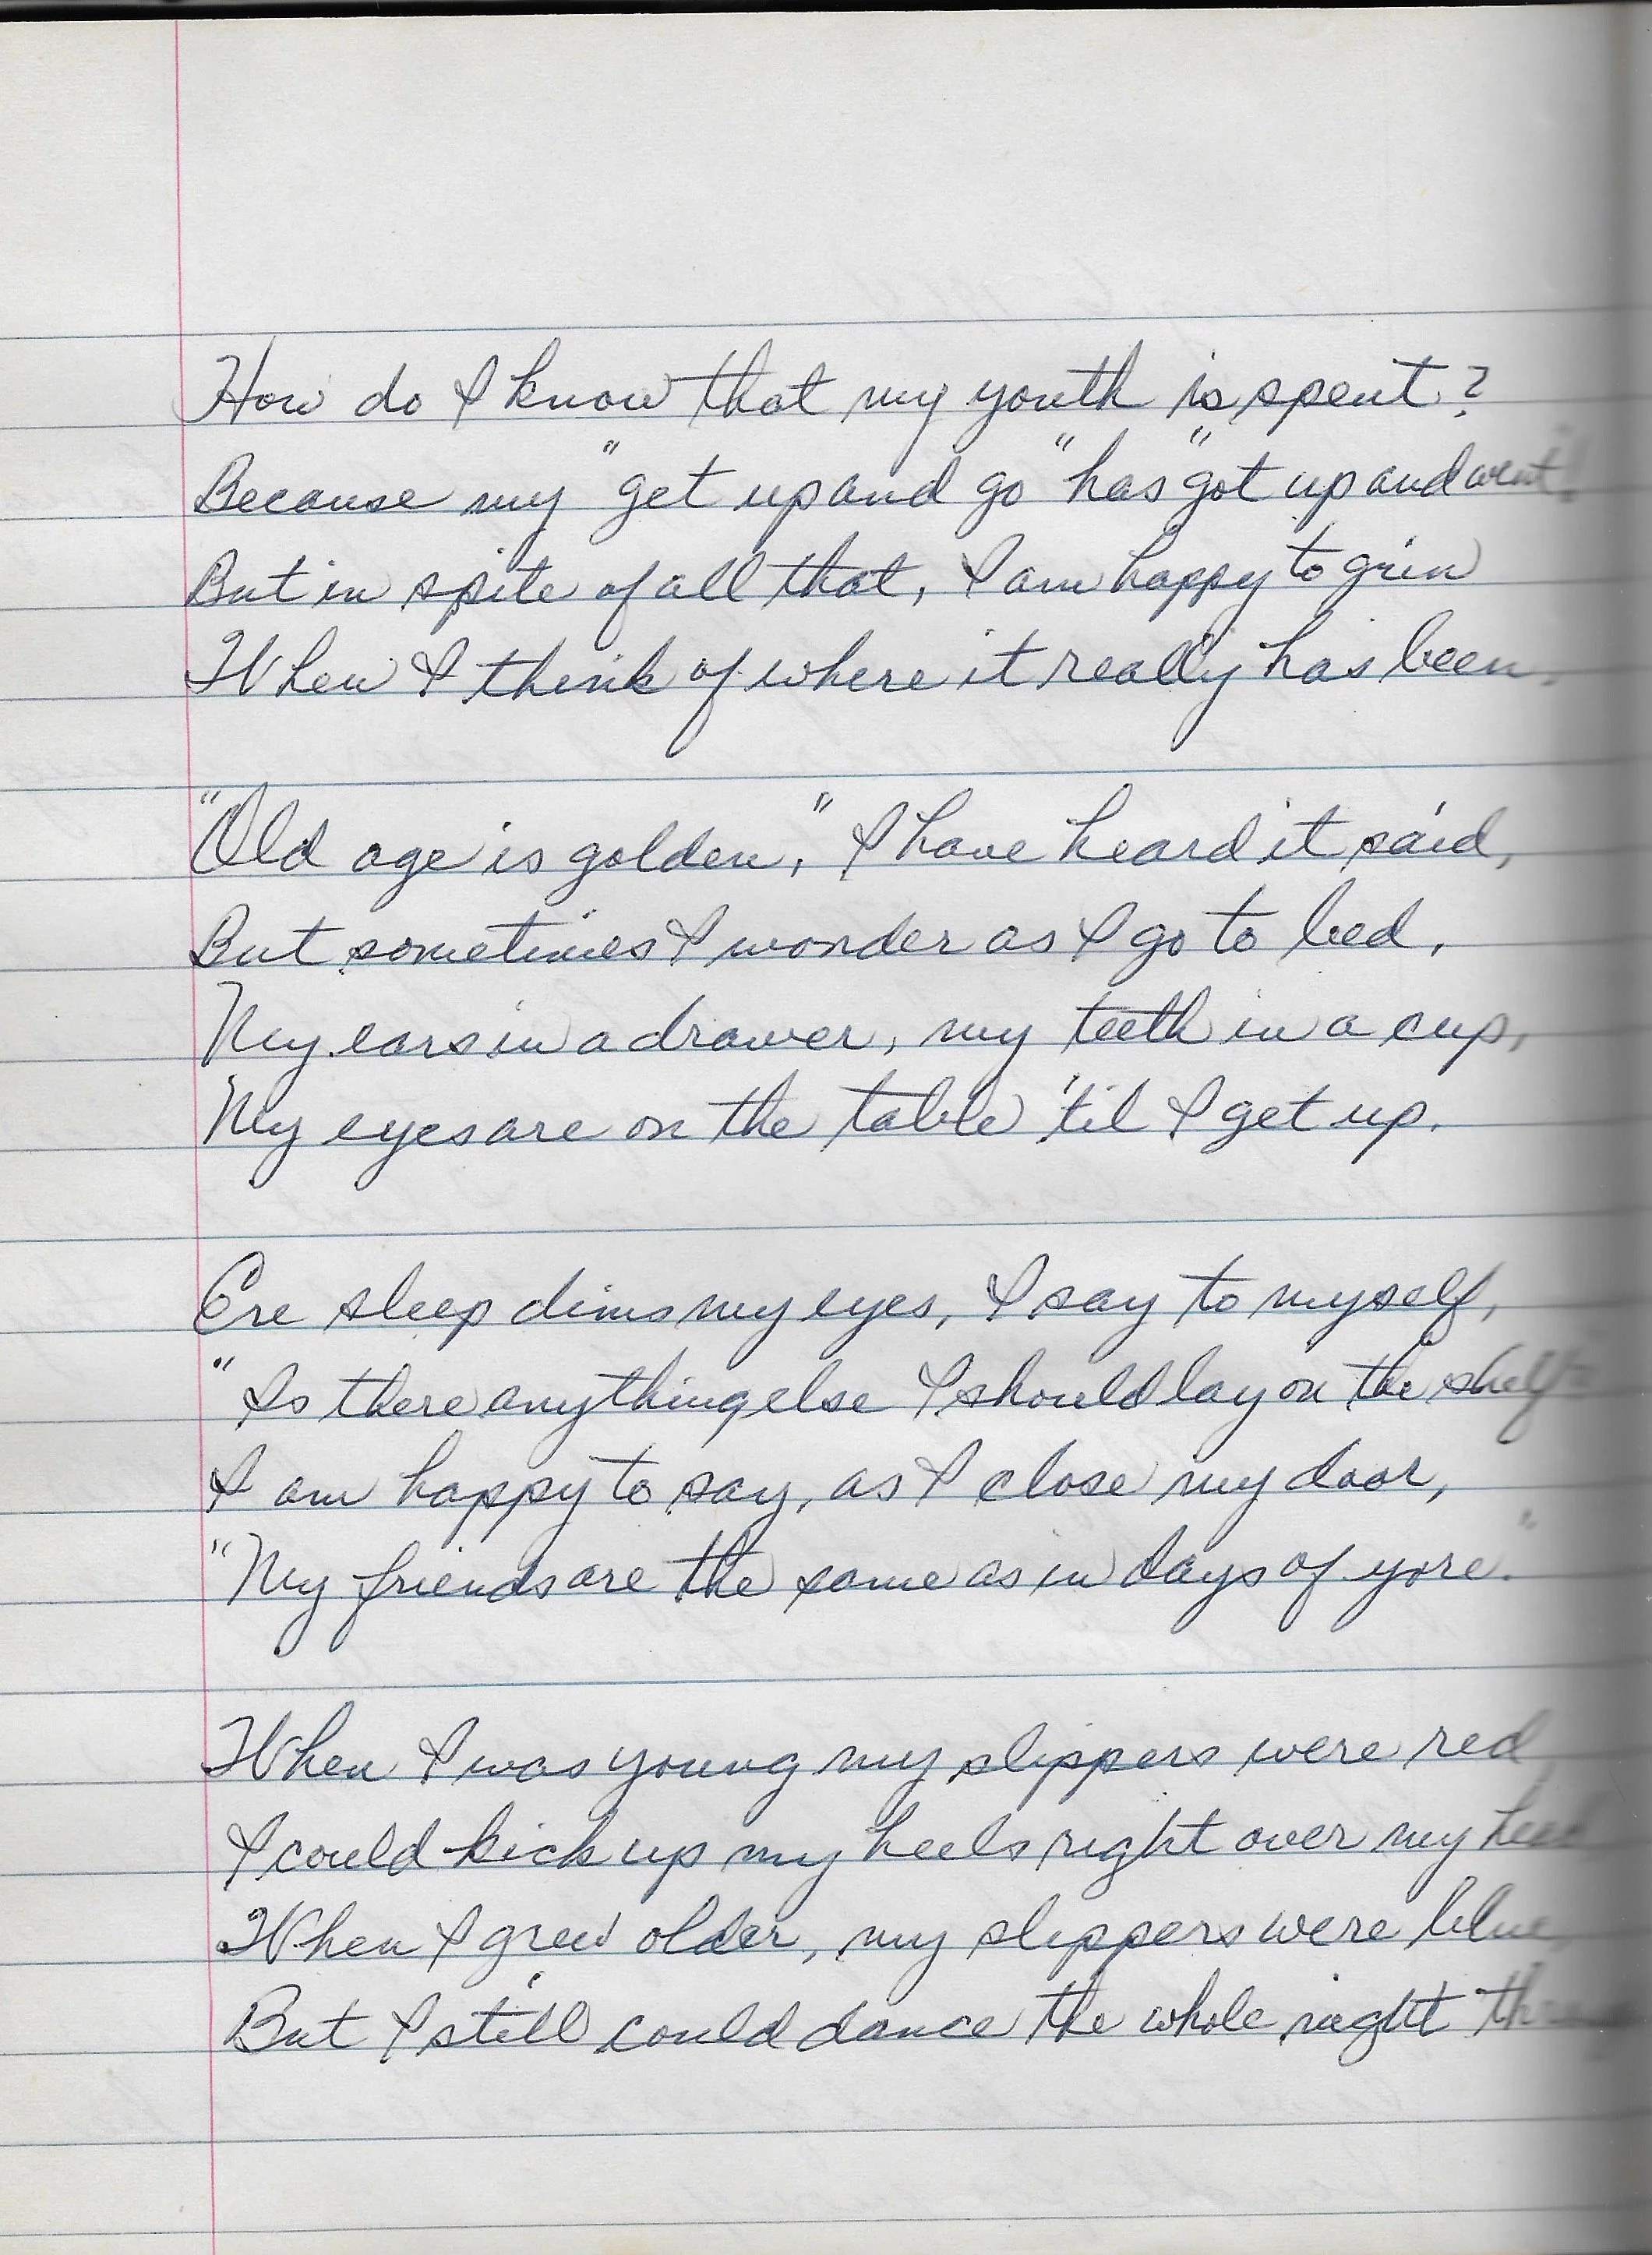 How do I know that my youth is spent?
Because my "get up and go" has "got up and went"!
But in spite of all that, I am happy to grin
When I think of where it really has been.
"Old age is golden," I have heard it said,
But sometimes I wonder as I go to bed,
My ears in a drawer, my teeth in a cup,
My eyes are on the table 'til I get up.
Ere sleep dims my eyes, I say to myself,
"Is there anything else I should lay on the shelf
I am happy to say, as I close my door,
"My friends are the same as in days of yore."
When I was young my slippers were red,
I could kick up my heels right over my head
When I grew older, my slippers were blue,
But I still could dance the whole night